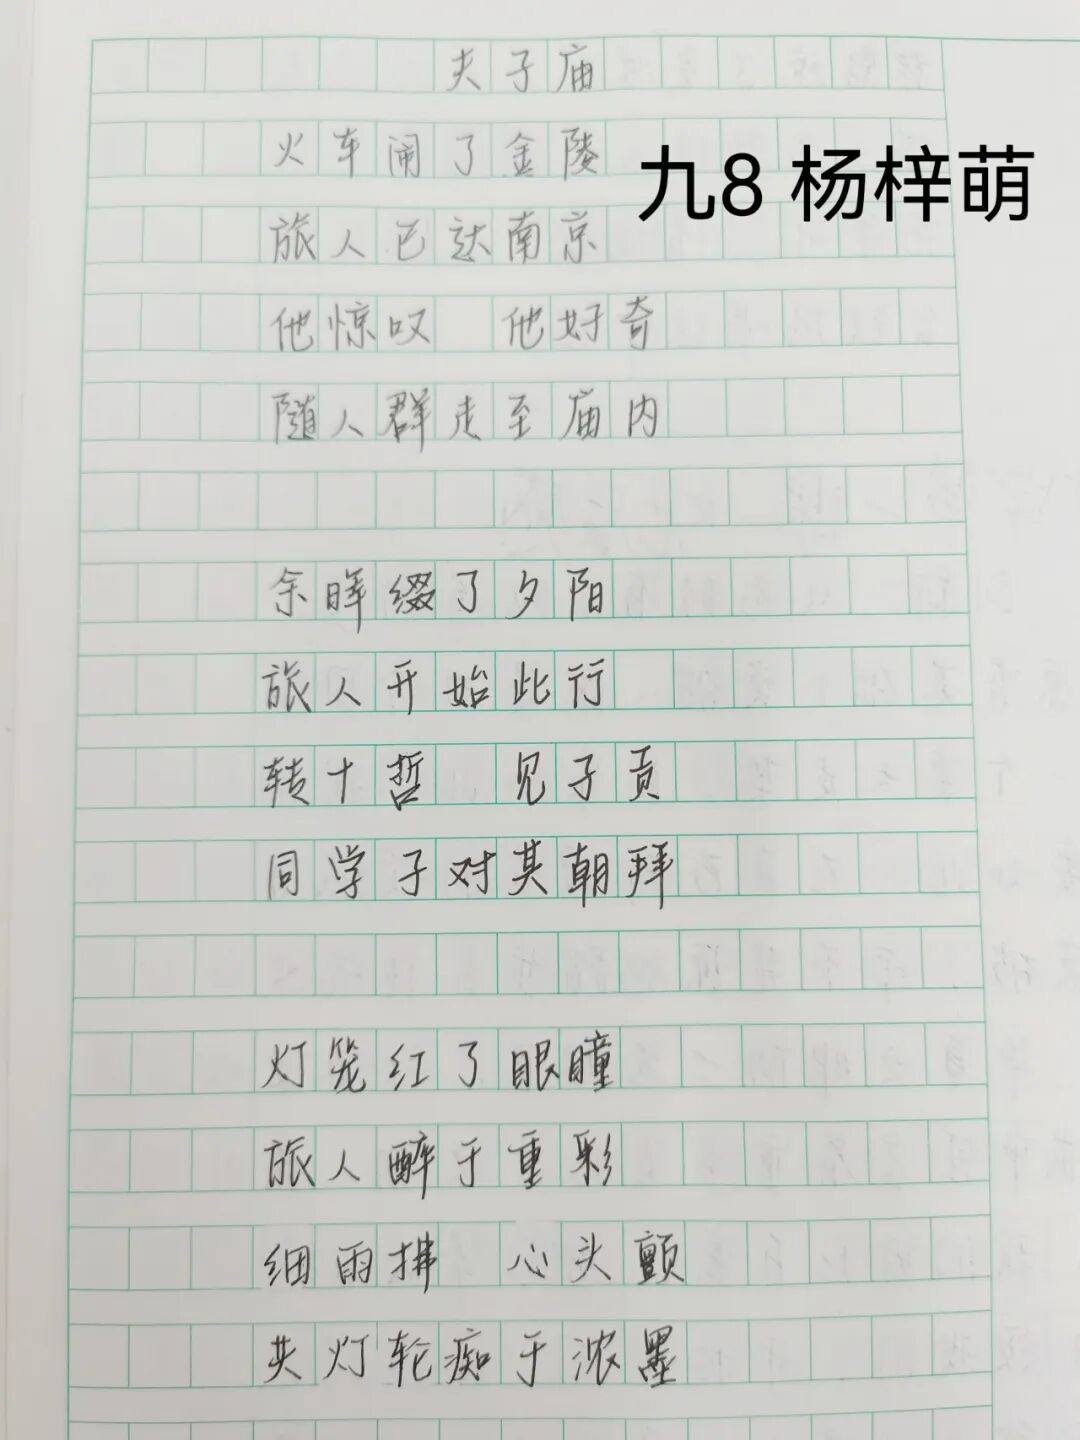 夫子庙
火车闹了金陵
九8 杨梓萌
旅人已达南京
他惊叹 他好奇
随人群走至庙内
余晖缀了夕阳
旅人开始此行
转十哲 见子贡
同学子对其朝拜
灯笼红了眼瞳
旅人醉于重彩
细雨拂 心头颤
共灯轮痴于浓墨